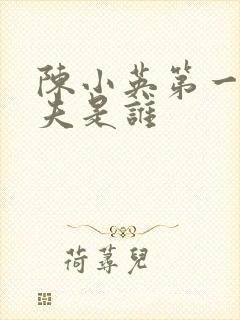 陳小英第一
夫是誰
荷蕁兒